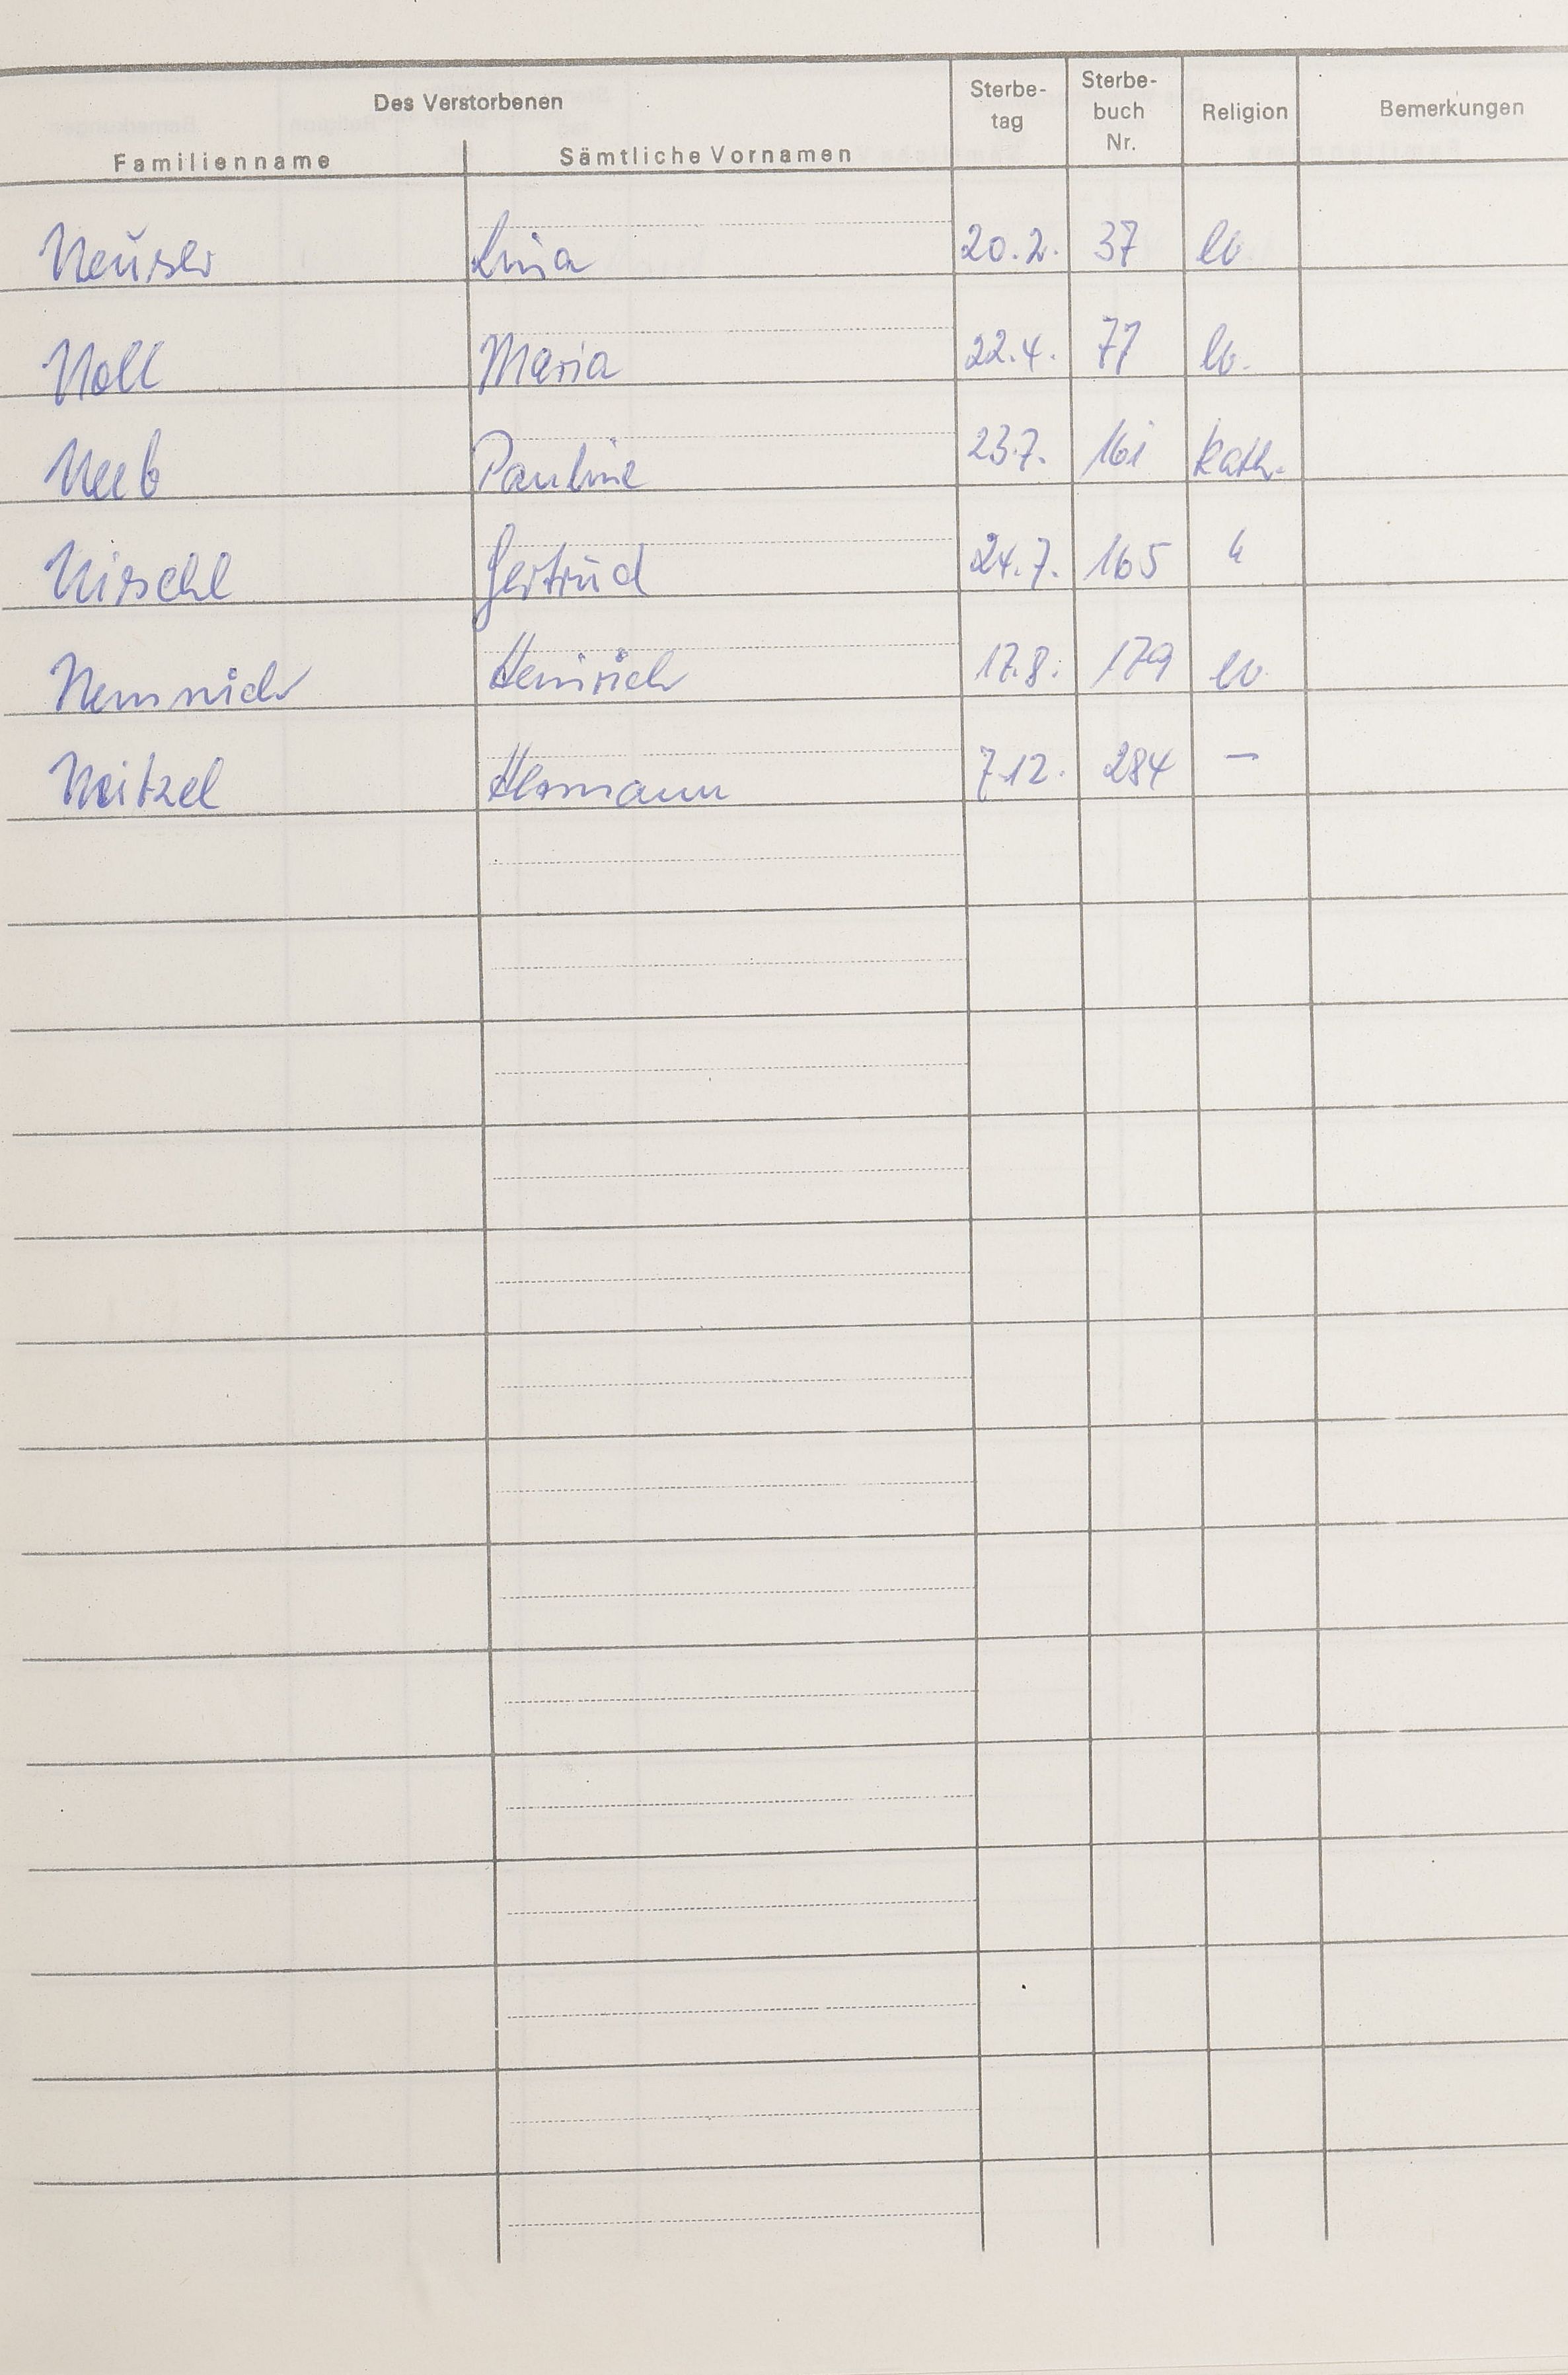 Des Verstorbenen
Familienname Sämtliche Vornamen Sterbe-tag Sterbe-buch Nr. Religion Bemerkungen
Neuser Lina 20.2. 37 ev
Noll Maria 22.4. 77 ev.
Neeb Pauline 23.7. 161 kath.
Nirschl Gertrud 24.7. 165 "
Nemnich Heinrich 17.8. 179 ev.
Neitzel Hermann 7.12. 284 —